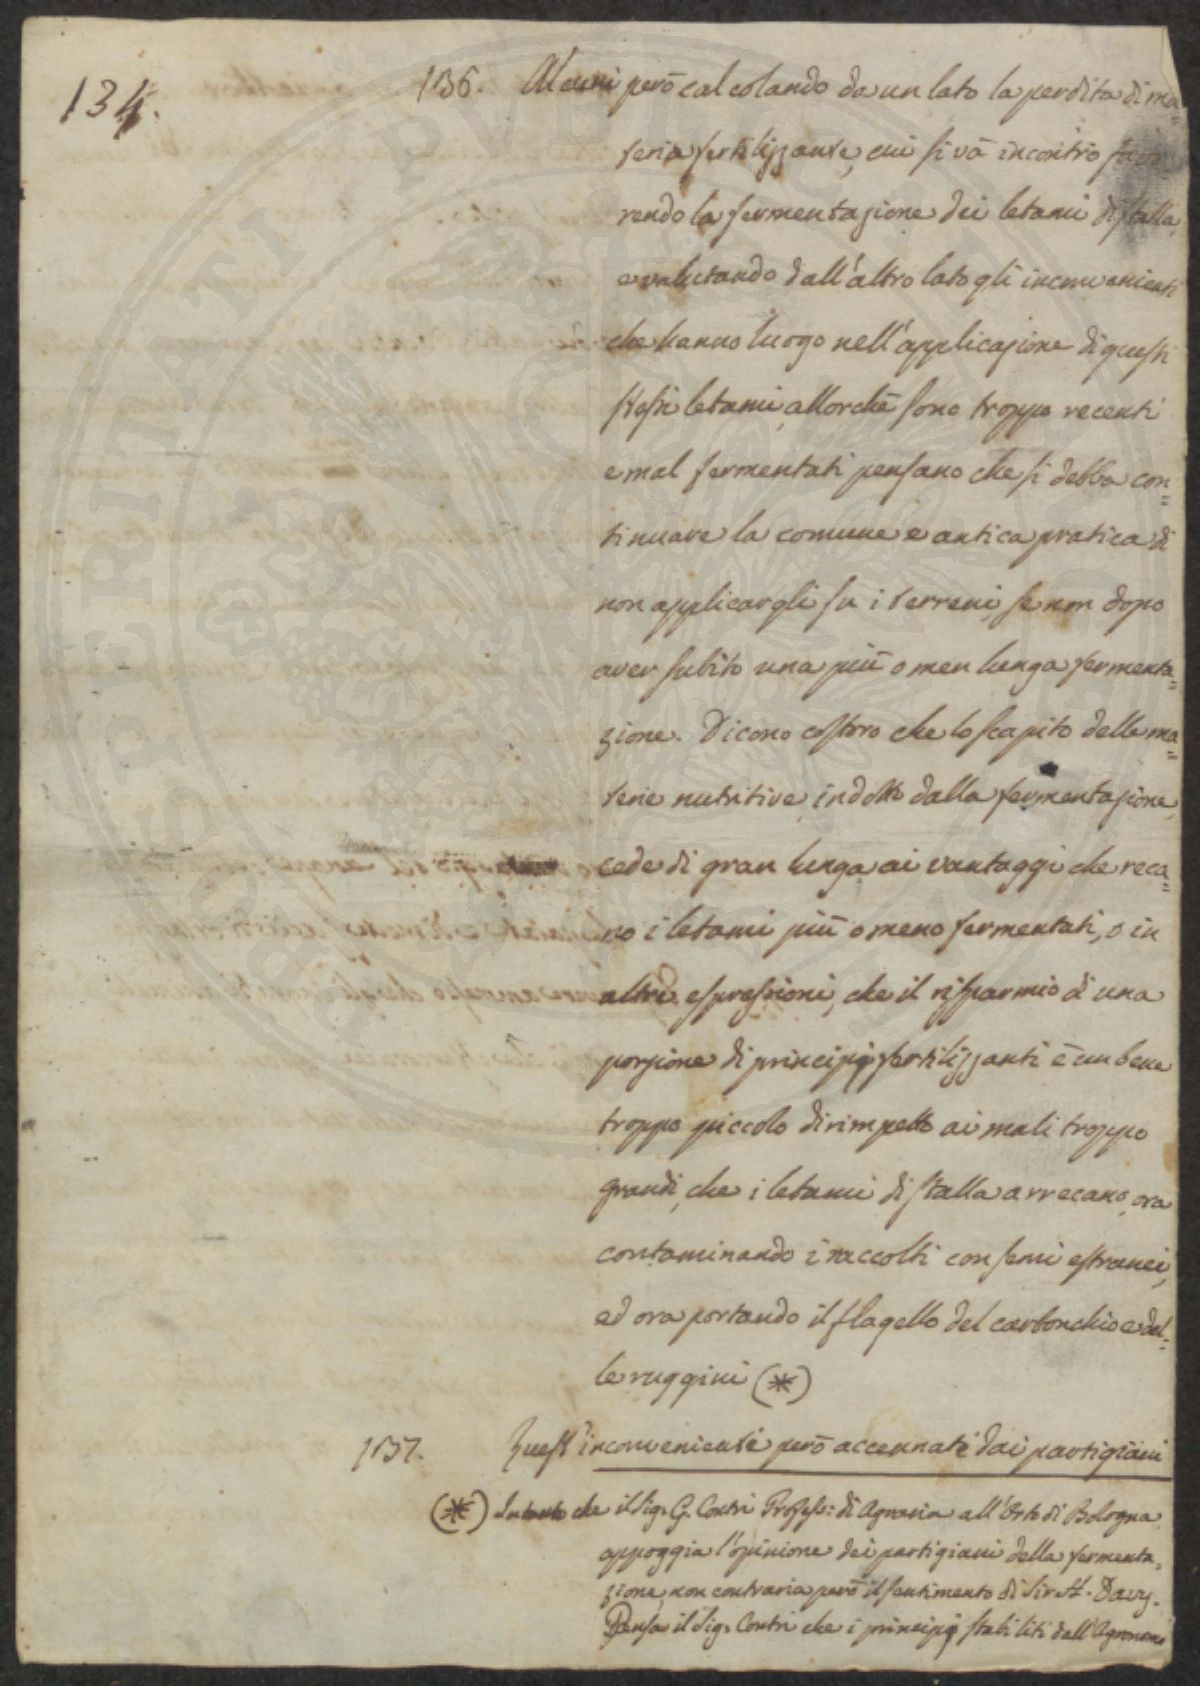 134.
1136. Alcuni però calcolando da un lato la perdita di ma=
teria fertilizzante, cui si và incontro favo=
rendo la fermentazione dei letami di stalla,
e valutando dall'altro lato gli inconvenienti
che hanno luogo nell'applicazione di questi
stessi letami, allorchè sono troppo recenti
e mal fermentati pensano che si debba con=
tinuare la comune e antica pratica di
non applicargli su i terreni, se non dopo
aver subito una più o men lunga fermenta=
zione. Dicono costoro che lo scapito delle ma=
terie nutritive, indotto dalla fermentazione,
cede di gran lunga ai vantaggi che reca=
no i letami più o meno fermentati, o in
altre espressioni, che il risparmio di una
porzione di principj fertilizzanti è un bene
troppo piccolo dirimpetto ai mali troppo
grandi, che i letami di stalla arrecano, ora
contaminando i raccolti con semi estranei,
ed ora portando il flagello del carbonchio e del=
le ruggini (*)
1137. Quest'inconvenienti però accennati dai partigiani
(*) Intanto che il Sig. G. Contri Profess: di Agraria all'Orto di Bologna
appoggia l'opinione dei partigiani della fermenta=
zione, non contraria però il sentimento di Sir H. Davy.
Pensa il Sig. Contri che i principj stabiliti dall'Agronomo
PUBLICAE PROSPERITATI